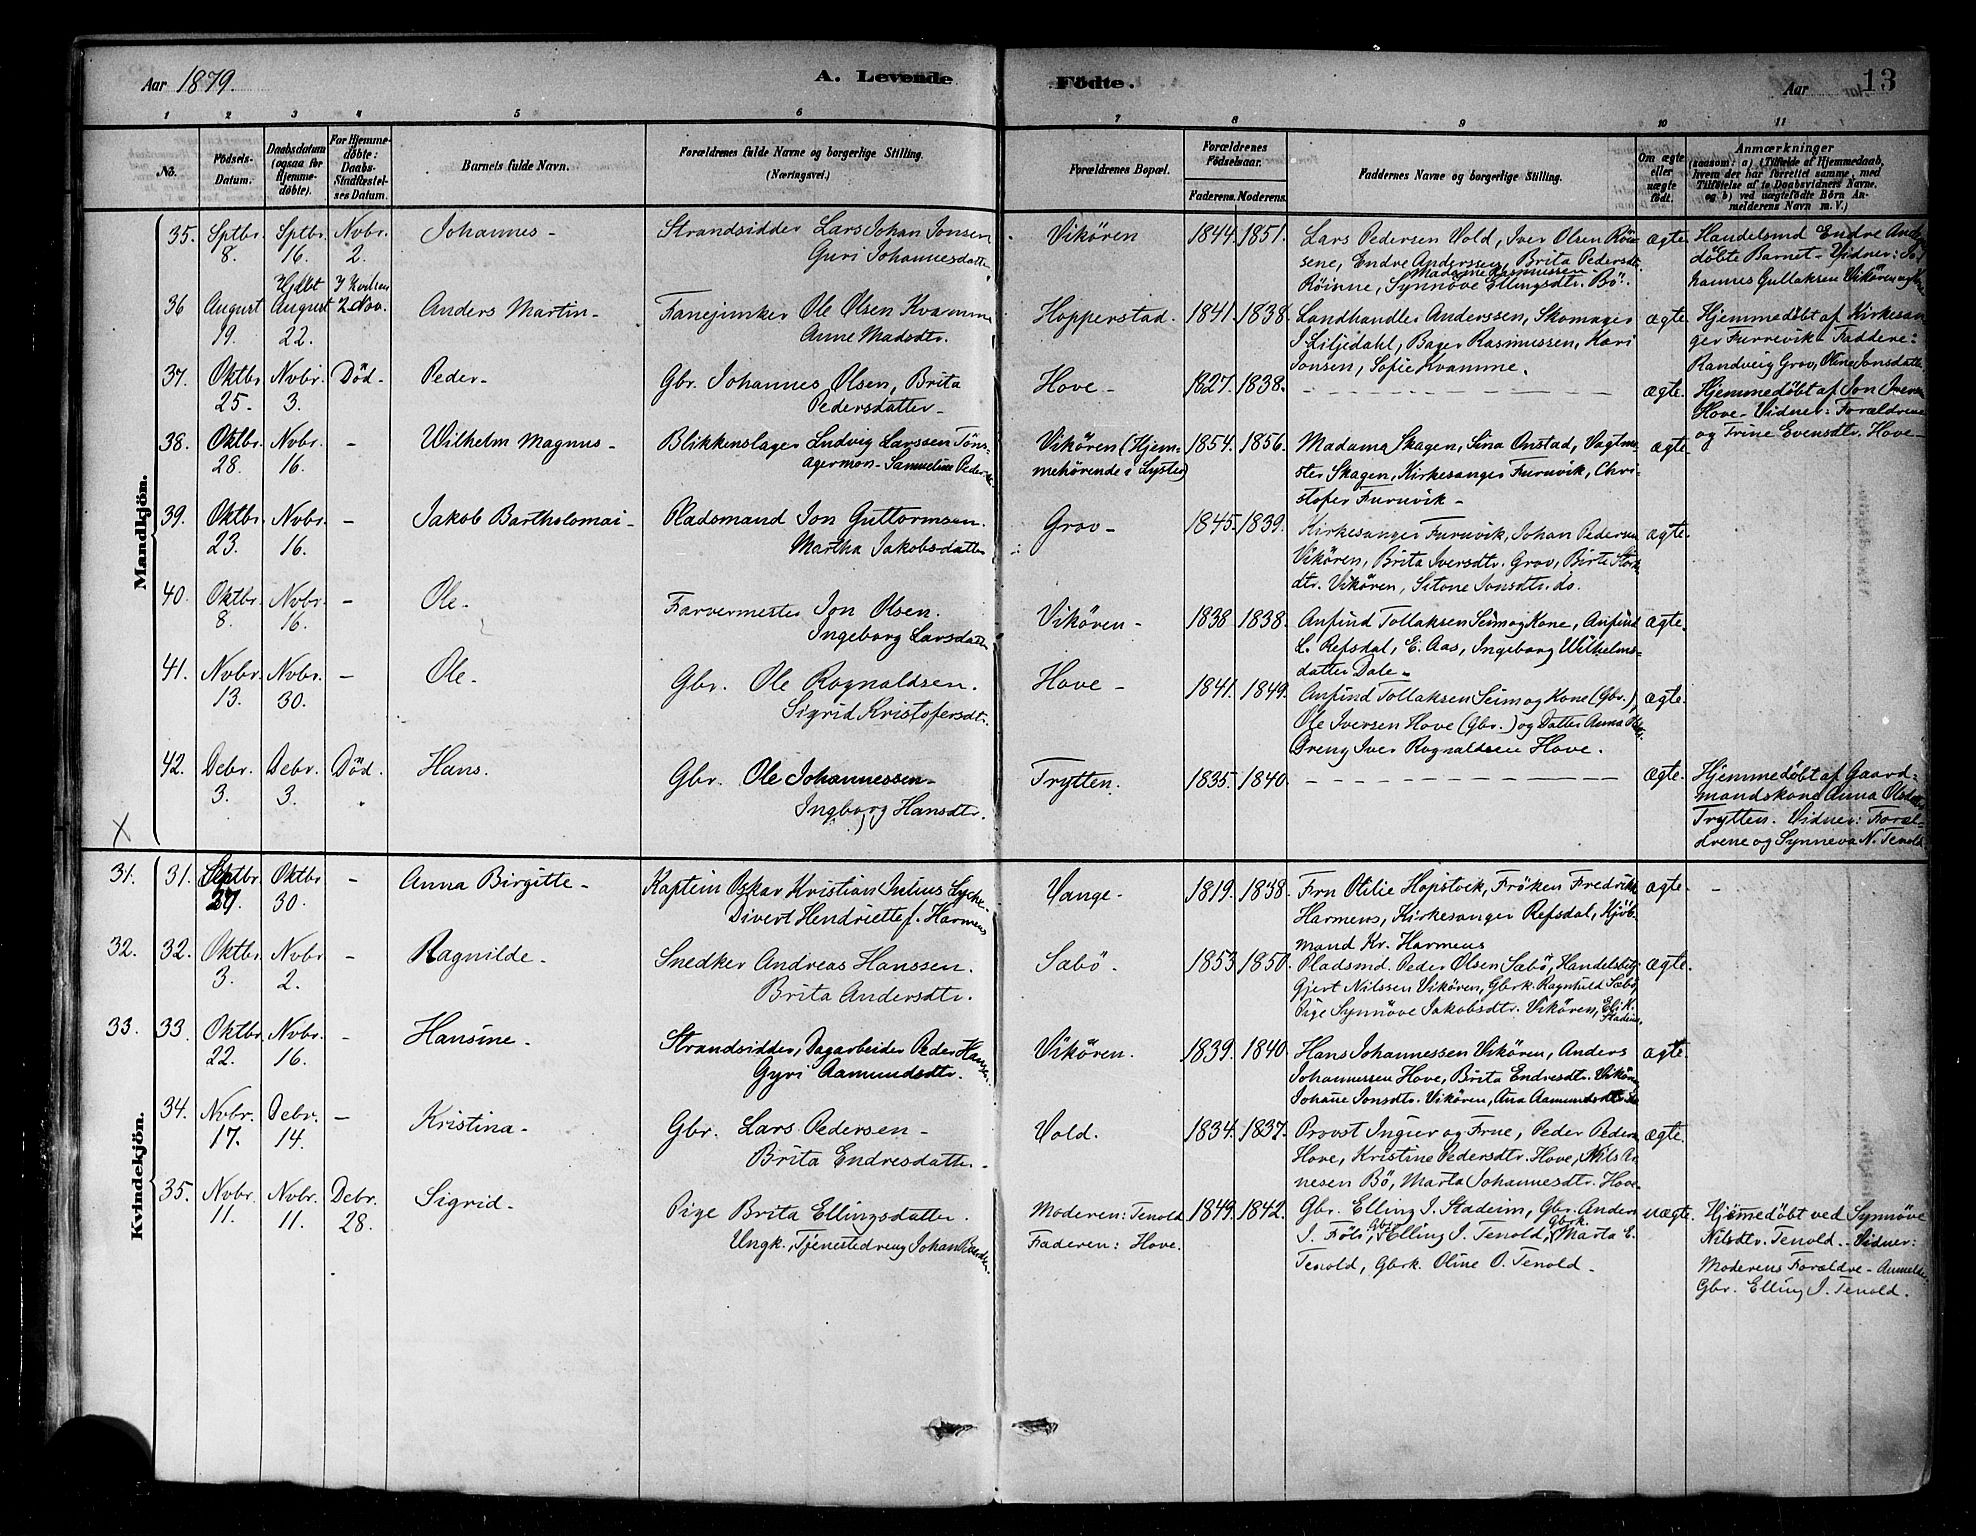 Aar 1879.
A. Levende
Födte.
Aar
13
1 2 3 4 5 6 7 8 9 10 11
No.
Födsels-
Datum.
Daabsdatum
(ogsaa for
Hjemme-
döbte).
For Hjemme-
döbte:
Daabs-
Stadfæstel-
ses Datum.
Barnets fulde Navn.
Forældrenes fulde Navne og borgerlige Stilling.
(Næringsvei.)
Forældrenes Bopæl.
Forældrenes
Födselsaar.
Faderens. Moderens.
Faddernes Navne og borgerlige Stilling.
Om ægte
eller
uægte
födt.
Anmærkninger
(saasom: a) i Tilfælde af Hjemmedaab,
hvem der har forrettet samme, med
Tilföielse af to Daabsvidners Navne.
og b) ved uægtefödte Börn An-
melderens Navn m. V.)
Mandkjön.
35. Sptbr. 8. Sptbr. 16. Hjdbt Nvbr. 2. Johannes- Strandsidder Lars Johan Jonsen
Guri Johannesdatter
Vikören 1844. 1851. Lars Pedersen Vold, Iver Olsen Röi-
sene, Endre Anderssen, Brita Pedersdt.
Madame Rasmussen-
Röinne, Synnöve Ellingsdtr. Bö.
ægte. Handelsmd Endre
döbte Barnet- Vidner: Jo-
hannes Gullaksen Vikören
36 August 19. August 22. 2 Nov. Anders Martin- Fanejunker Ole Olsen Kvamme
Anne Madsdtr.
Hopperstad. 1841. 1838. Landhandler Anderssen, Skomager
J. Liljedahl, Bager Rasmussen, Kari
Jonsen, Sofie Kvamme.
ægte. Hjemmedöbt af Kirkesan-
ger Furrevik- Faddere:
Randveig Grov, Oline Jonsdatter
37. Oktbr. 25. Nvbr. 3. Död- Peder- Gbr. Johannes Olsen, Brita
Pedersdatter-
Hove- 1827. 1838. ægte. Hjemmedöbt af Jon Iversen
Hove- Vidner: Forældrene
og Trine Evensdtr. Hove-
38. Oktbr. 28. Nvbr. 16. - Wilhelm Magnus- Blikkenslager Ludvig Larssen Töns-
agermon- Samueline Pedersdtr.
Vikören (Hjem-
mehörende i Lyster)
1854. 1856. Madama Skagen, Sina Onstad, Vagtme-
ster Skagen, Kirkesanger Furuvik, Chri-
stofer Furuvik-
ægte.
39. Oktbr. 23. Nvbr. 16. - Jakob Bartholomai- Pladsmand Jon Guttormsen.
Martha Jakobsdatter
Grov- 1845. 1839. Kirkesanger Furuvik, Johan Pedersen
Vikören, Brita Iversdtr. Grov, Birte
dtr. Vikören, Sitone Jonsdtr. do.
ægte.
40. Oktbr. 8. Nvbr. 16. - Ole- Farvermester Jon Olsen.
Ingeborg Larsdatter
Vikören- 1838 1838. Anfind Tollaksen Seim og Kone, Anfind
L. Refsdal, E. Aas, Ingeborg Wilhelms-
datter Dale-
ægte.
41. Nvbr. 13. Nvbr. 30. - Ole- Gbr. Ole Rognaldsen.
Sigrid Kristofersdtr.
Hove- 1841. 1849. Anfind Tollaksen Seim og Kone (Gbr.),
Ole Iversen Hove (Gbr.) og Datter Anna
Dreng Iver Rognaldsen Hove.
ægte.
42. Debr. 3. Debr. 3. Död. Hans. Gbr. Ole Johannessen-
Ingborg Hansdtr.
Trytten. 1835. 1840. ægte. Hjemmedöbt af Gaard-
mandskone Anna Olsdatter
Trytten. Vidner: Foræl-
drene og Synneva N. Tenold
X
Kvindekjön.
31. 31. Septbr. 29. Oktbr 30. - Anna Birgitte- Kaptein Oskar Kristian Julius Lycke-
Divert Henriette f. Harmens
Vange- 1819. 1838. Fru Otilie Hopstock, Fröken Fredrikke
Harmens, Kirkesanger Refsdal, Kjöb-
mand Kr. Harmens
ægte- -
32. 32. Oktbr. 3. Nvbr. 2. - Ragnilde- Snedker Andreas Hanssen.
Brita Andersdtr.
Sæbö. 1853 1850. Pladsmd. Peder Olsen Sæbö, Handelsbetj.
Gjert Nilssen Vikören, Gbrk. Ragnhild Sæbö
Pige Synnöve Jakobsdtr. Vikören, Eli K.
Stadeim.
ægte.
33. 33. Oktbr. 22. Nvbr. 16. - Hansine- Strandsidder, Dagarbeider Peder Hansen.
Gyri Aamundsdtr.
Vikören. 1839. 1840. Hans Johannessen Vikören, Anders
Johannessen Hove, Brita Endresdtr. Vikören
Johane Jonsdtr. Vikören, Ana Aamundsdtr.
ægte.
34. Nvbr. 17. Debr. 14. - Kristina- Gbr. Lars Pedersen-
Brita Endresdatter-
Vold. 1834. 1837. Provst Ingier og Frue, Peder Peders.
Hove, Kristine Pedersdtr. Hove, Nils
nesen Bö, Marta Johannesdtr. Hove-
ægte.
35. Nvbr. 11. Nvbr. 11. Debr. 28. Sigrid- Pige Brita Ellingsdatter.
Ungk., Tjenestedreng Johan
Moderen: Tenold
Faderen: Hove.
1849. 1842. Gbr. Elling I. Stadeim, Gbr. Anders
I. Föli, Gbr. Elling I. Tenold, Gbrk. Marta E.
Tenold, Gbrk. Oline O. Tenold-
uægte. Hjemmedöbt ved Synnöve
Nilsdtr. Tenold- Vidner:
Moderens Forældre- Anmelder:
Gbr. Elling I. Tenold.